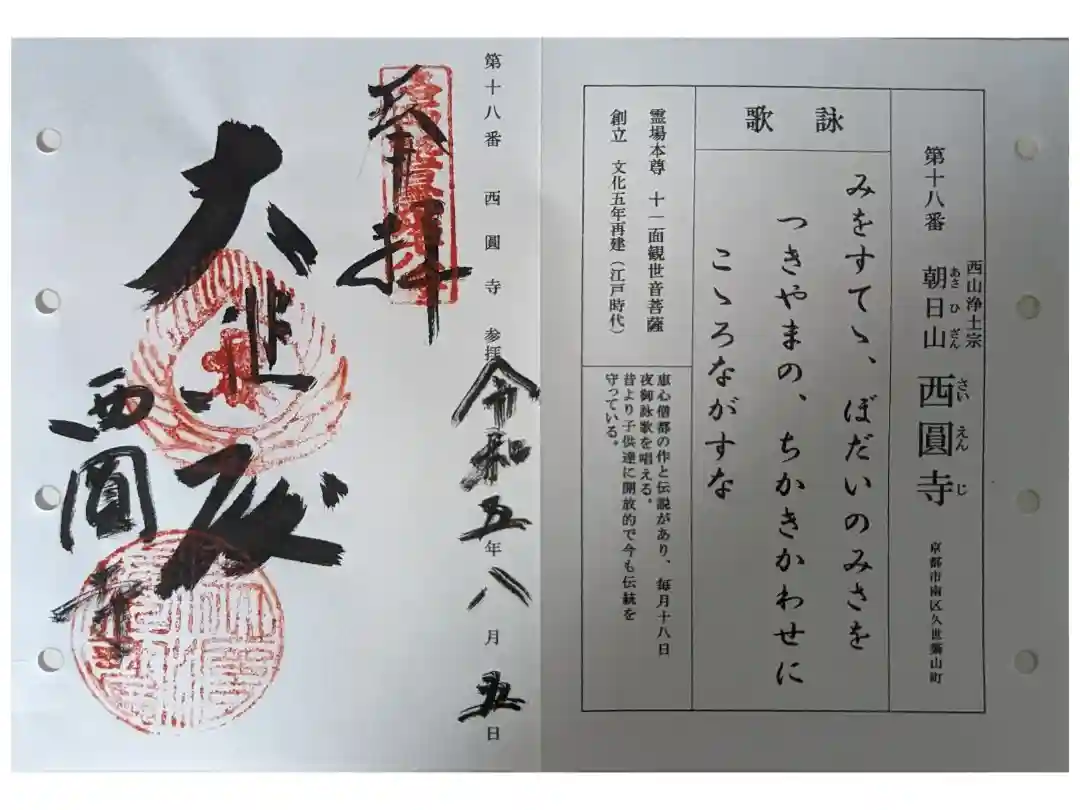 西山浄土宗
第十八番 朝日山 西圓寺 京都市南区久世築山町
あさ ひ ざん さい えん じ
詠歌
みをすてゝ、ぼだいのみさを
つきやまの、ちかきかわせに
こゝろながすな
霊場本尊 十一面観世音菩薩
創立 文化五年再建(江戸時代)
恵心僧都の作と伝説があり、毎月十八日
夜御詠歌を唱える。
昔より子供達に開放的で今も伝統を
守っている。
第十八番 西圓寺 参拝 令和五年八月五日
奉拝
大悲殿
西圓寺